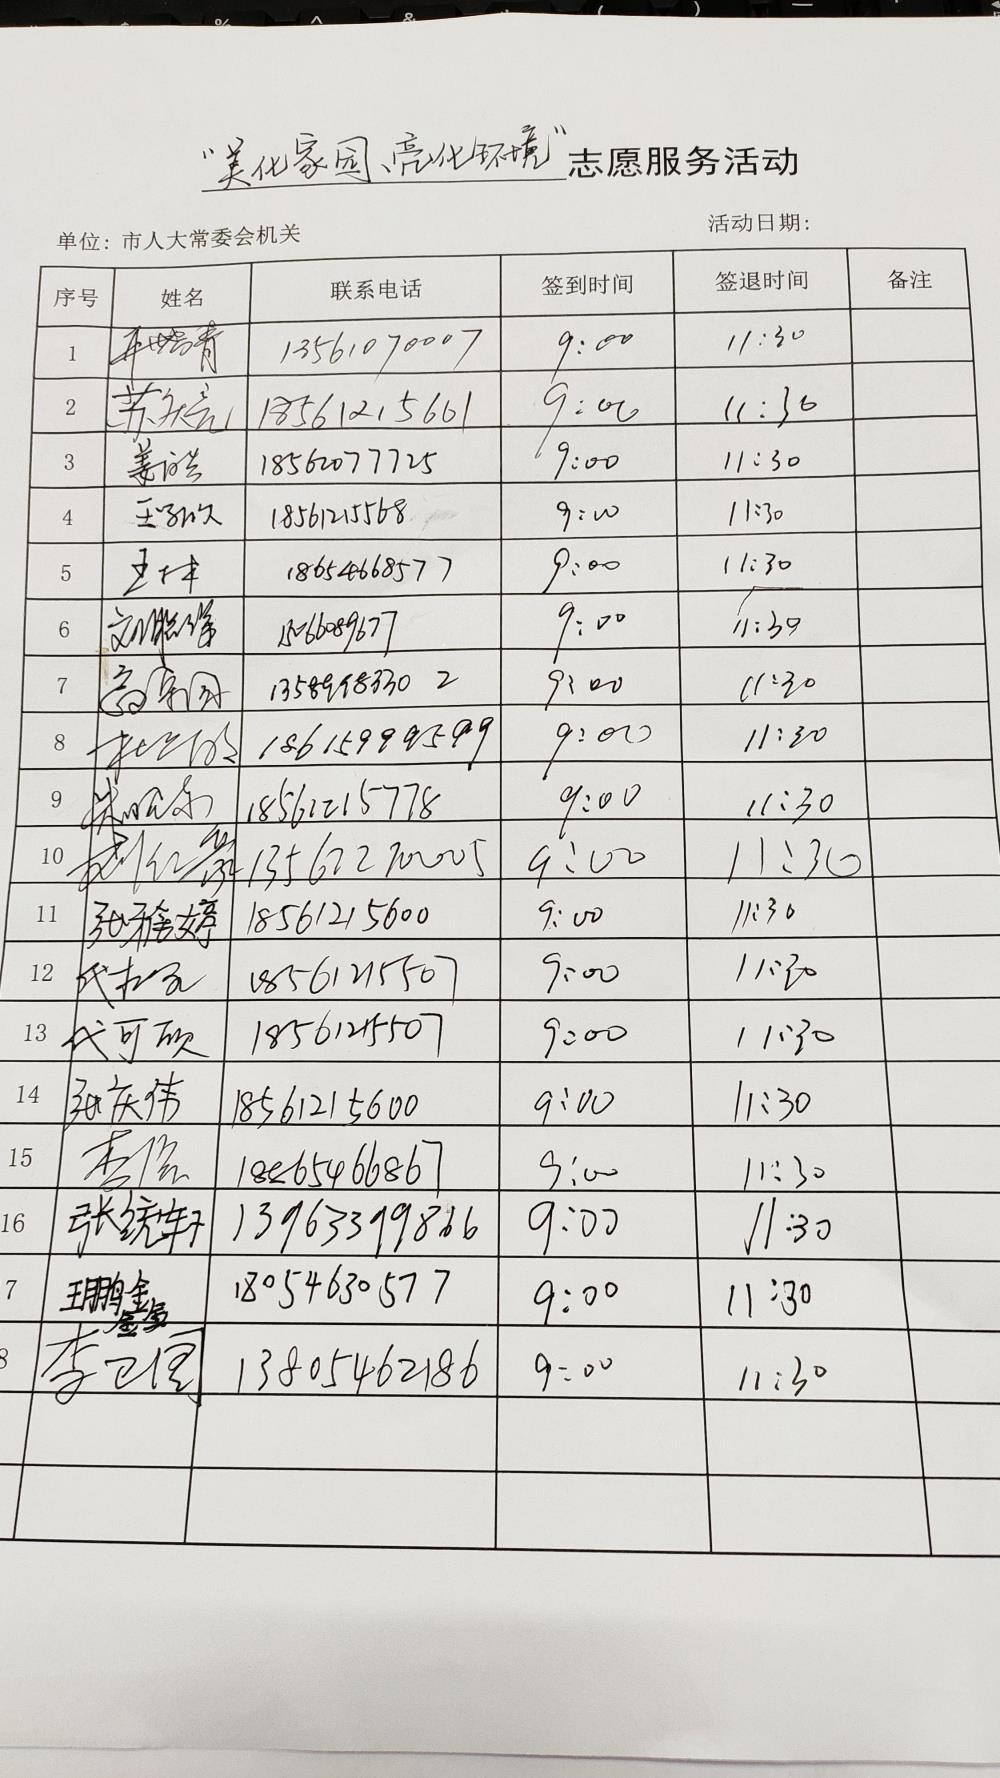 “美化家园、亮化环境”志愿服务活动
单位: 市人大常委会机关 活动日期:
序号 姓名 联系电话 签到时间 签退时间 备注
1 13561070007 9:00 11:30
2 18561215661 9:00 11:30
3 姜浩 18562077725 9:00 11:30
4 18561215568 9:00 11:30
5 王林 18654668577 9:00 11:30
6 15066089677 9:00 11:30
7 高宗国 13589983302 9:00 11:30
8 9:00 11:30
9 18561215778 9:00 11:30
10 9:00 11:30
11 张雅婷 18561215600 9:00 11:30
12 18561215507 9:00 11:30
13 代可硕 18561215507 9:00 11:30
14 张庆伟 18561215600 9:00 11:30
15 9:00 11:30
16 张统轩 13963399866 9:00 11:30
7 王鹏鑫 18054630577 9:00 11:30
8 李卫国 13805462186 9:00 11:30